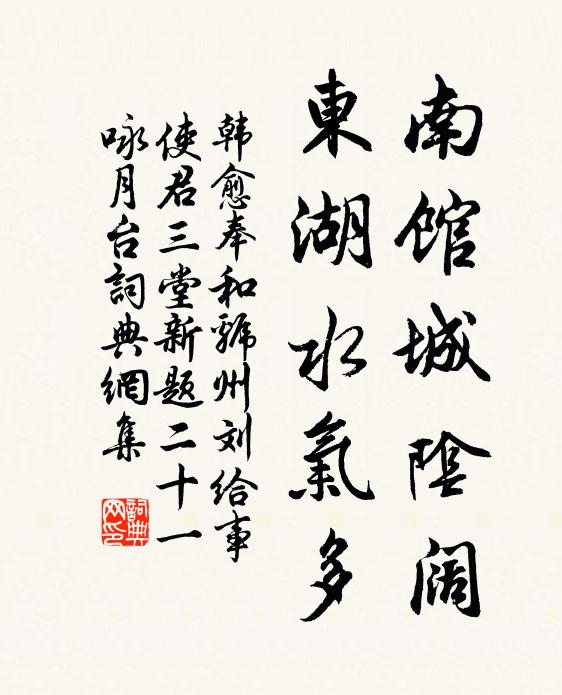 南馆城陰阔
東湖水氣多
韩愈奉和虢州刘给事
使君三堂新题二十一
咏月台詞典網集
詞典
网印